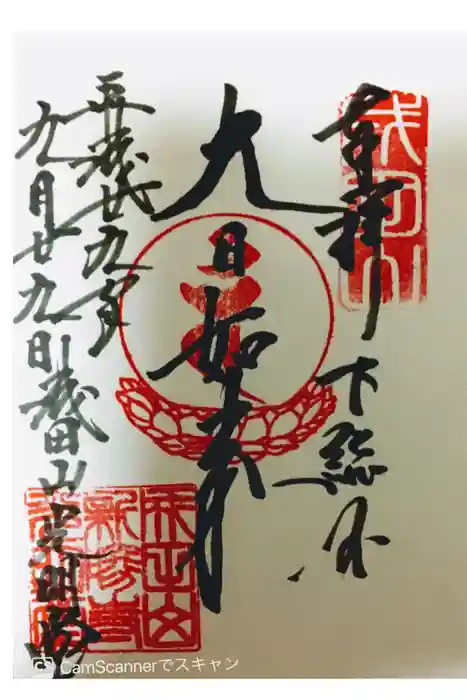 奉拝 下総国
大日如来
平成廿九年
九月廿九日 成田山光明堂
CamScannerでスキャン